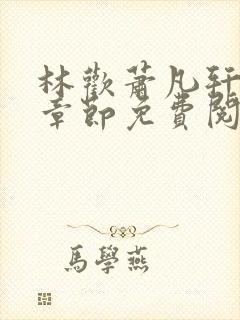 林歡蕭凡軒
章節免費閱
馬學燕